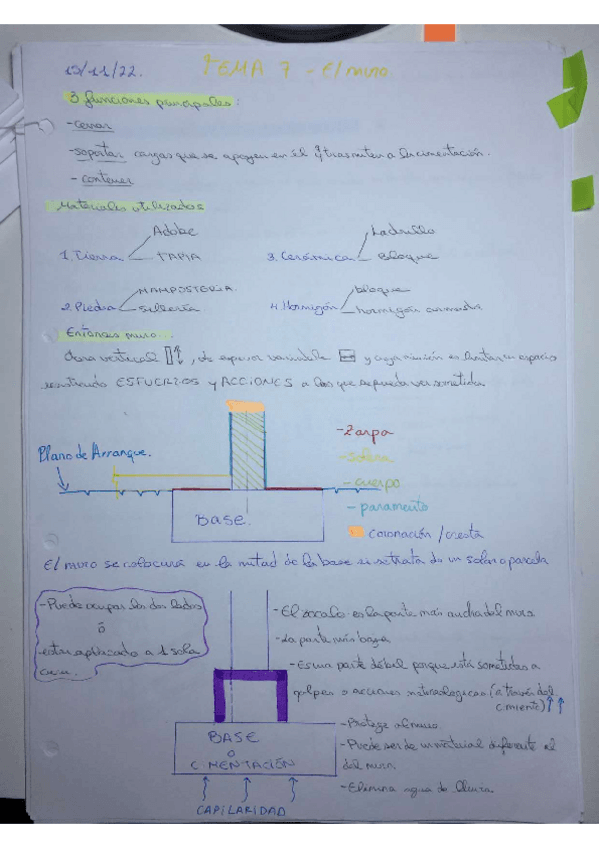 15/11/22. TEMA 7 - El muro
3 funciones principales:
- cerrar
- soportar cargas que se apoyen en él y trasmiten a la cimentación.
- contener
Materiales utilizados
1. Tierra Adobe TAPIA
3. Cerámica Ladrillo Bloque
2. Piedra MAMPOSTERIA Sillería
4. Hormigón bloque hormigón armado
Entonces muro...
Obra vertical, de espesor variable y cuya misión es limitar un espacio
resistiendo ESFUERZOS y ACCIONES a los que se pueda ver sometida
Plano de Arranque.
- Zarpa
- solera
- cuerpo
- paramento
coronación / cresta
BASE.
El muro se colocará en la mitad de la base si se trata de un solar o parcela
- Puede ocupar los dos lados
ó
- estar aplicado a 1 sola
cara.
- El zocalo es la parte más ancha del muro
- La parte más baja
- Es una parte débil porque está sometida a
golpes o acciones (a través del
cimiente)
- Protege al muro.
- Puede ser de un material diferente al
del muro.
- Elimina agua de lluvia.
BASE
ó
CIMENTACIÓN
CAPILARIDAD